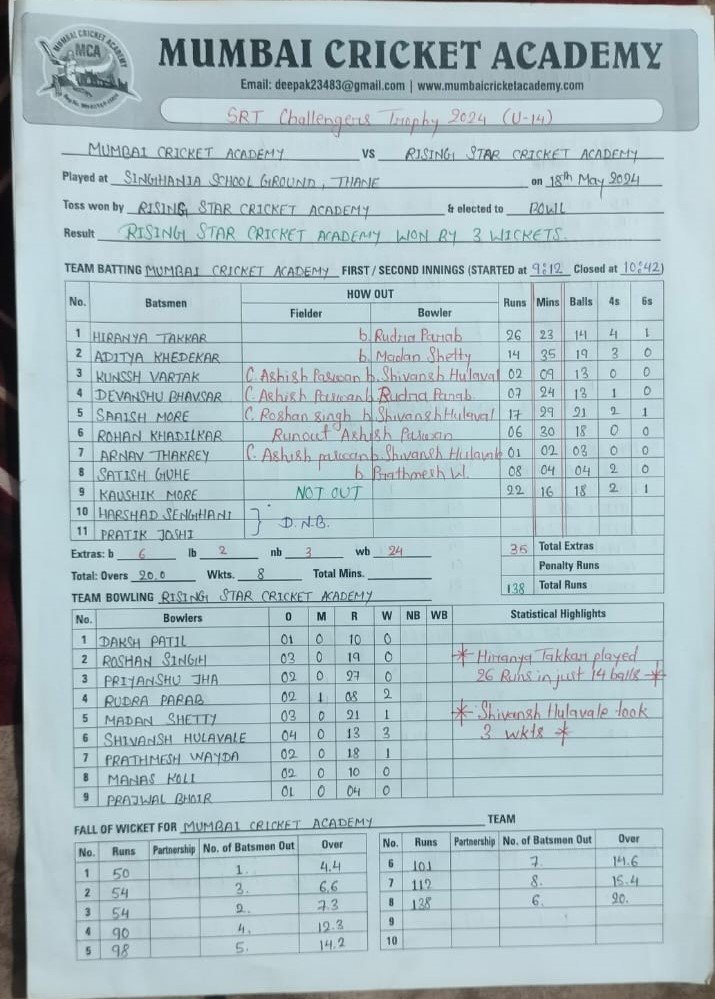 MUMBAI CRICKET ACADEMY
MCA
MUMBAI CRICKET ACADEMY
Email: deepak23483@gmail.com | www.mumbaicricketacademy.com
SRT Challengers Trophy 2024 (U-14)
MUMBAI CRICKET ACADEMY VS RISING STAR CRICKET ACADEMY
Played at SINGHANIA SCHOOL GROUND, THANE on 18th May 2024
Toss won by RISING STAR CRICKET ACADEMY & elected to BOWL
Result RISING STAR CRICKET ACADEMY WON BY 3 WICKETS.
TEAM BATTING MUMBAI CRICKET ACADEMY FIRST / SECOND INNINGS (STARTED at 9:12 Closed at 10:42)
No. Batsmen HOW OUT Runs Mins Balls 4s 6s
Fielder Bowler
1 HIRANYA TAKKAR b. Rudra Parab 26 23 14 4 1
2 ADITYA KHEDEKAR b. Madan Shetty 14 35 19 3 0
3 KUNSSH VARTAK C. Ashish Paswan b. Shivansh Hulaval 02 09 13 0 0
4 DEVANSHU BHAVSAR C. Ashish Paswan b Rudra Parab. 07 24 13 1 0
5 SAAISH MORE C. Roshan Singh b Shivansh Hulaval 17 29 21 2 1
6 ROHAN KHADILKAR Runout Ashish Paswan 06 30 18 0 0
7 ARNAV THAKREY C. Ashish paswan b. Shivansh Hulavale 01 02 03 0 0
8 SATISH GUHE b Prathmesh W. 08 04 04 2 0
9 KAUSHIK MORE NOT OUT 22 16 18 2 1
10 HARSHAD SENGHANI } D.N.B.
11 PRATIK JOSHI
Extras: b 6 lb 2 nb 3 wb 24 35 Total Extras
Penalty Runs
Total: Overs 20.0 Wkts. 8 Total Mins. 138 Total Runs
TEAM BOWLING RISING STAR CRICKET ACADEMY
No. Bowlers O M R W NB WB Statistical Highlights
1 DAKSH PATIL 01 0 10 0
2 ROSHAN SINGH 03 0 19 0 * Hiranya Takkar played
3 PRIYANSHU JHA 02 0 27 0 26 Runs in just 14 balls *
4 RUDRA PARAB 02 1 08 2
5 MADAN SHETTY 03 0 21 1 * Shivansh Hulavale took
6 SHIVANSH HULAVALE 04 0 13 3 3 wkts *
7 PRATHMESH WAYDA 02 0 18 1
8 MANAS KOLI 02 0 10 0
9 PRAJWAL BHOIR 01 0 04 0
FALL OF WICKET FOR MUMBAI CRICKET ACADEMY TEAM
No. Runs Partnership No. of Batsmen Out Over No. Runs Partnership No. of Batsmen Out Over
1 50 1. 4.4 6 101 7. 14.6
2 54 3. 6.6 7 112 8. 15.4
3 54 2. 7.3 8 138 6. 20.
4 90 4. 12.3 9
5 98 5. 14.2 10